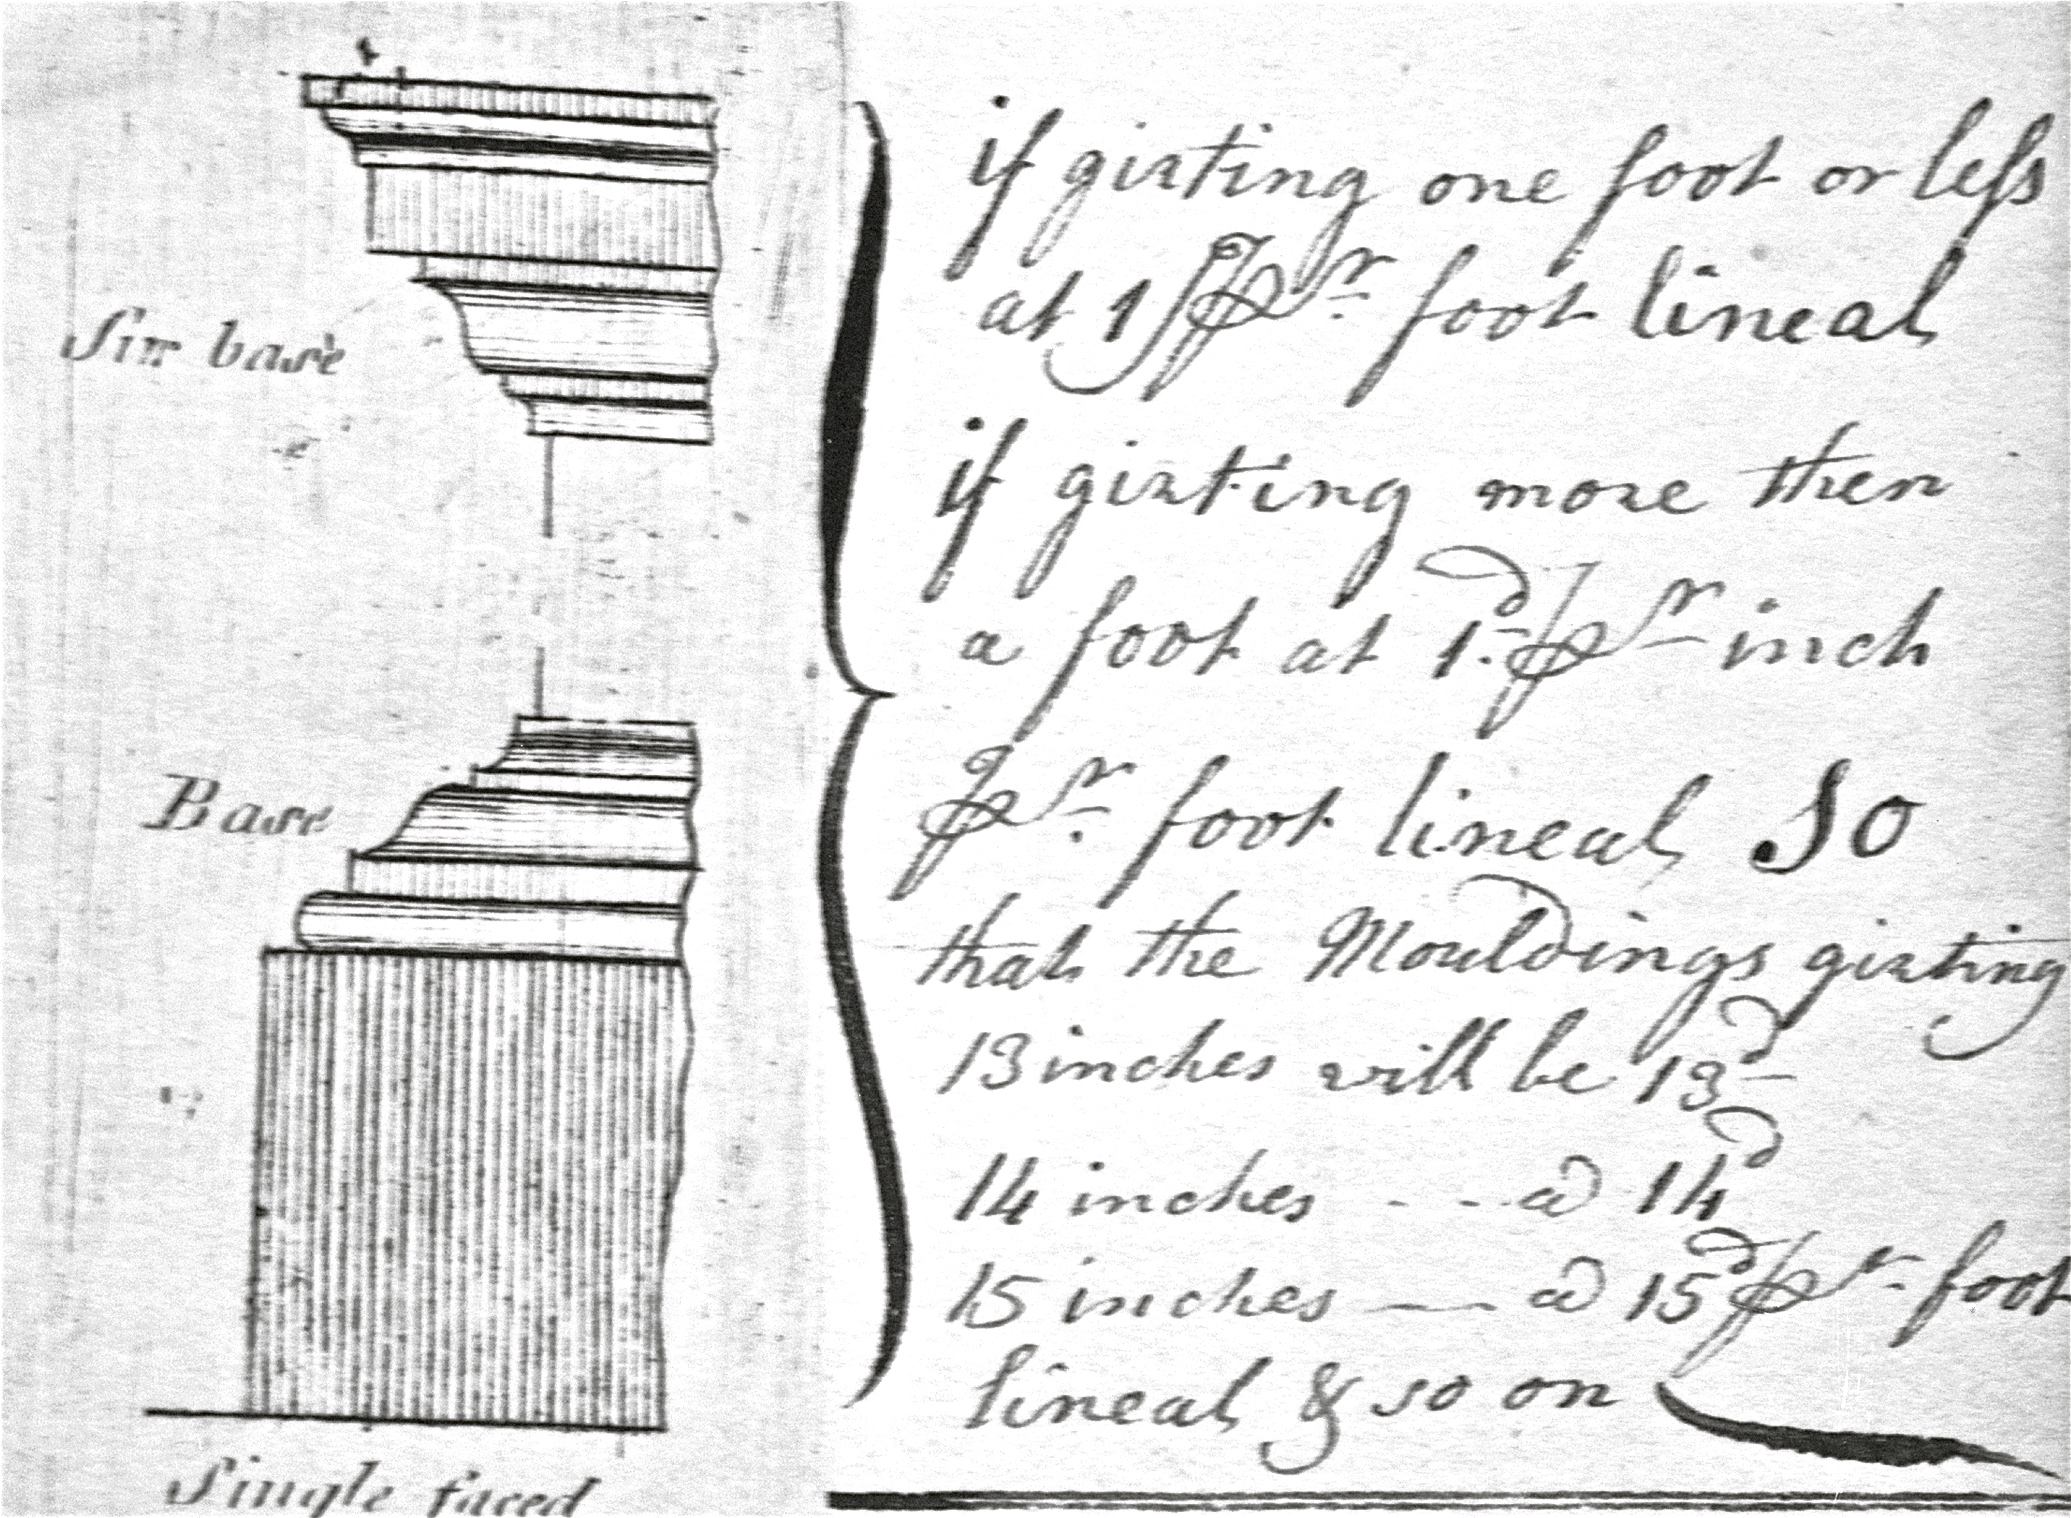 Sur base
Base
Single faced
if girting one foot or leſs
at 1ſ pr foot lineal
if girting more then
a foot at 1d pr inch
pr foot lineal So
that the Mouldings girting
13 inches will be 13d
14 inches - - - a 14d
15 inches — a 15d pr foot
lineal & so on